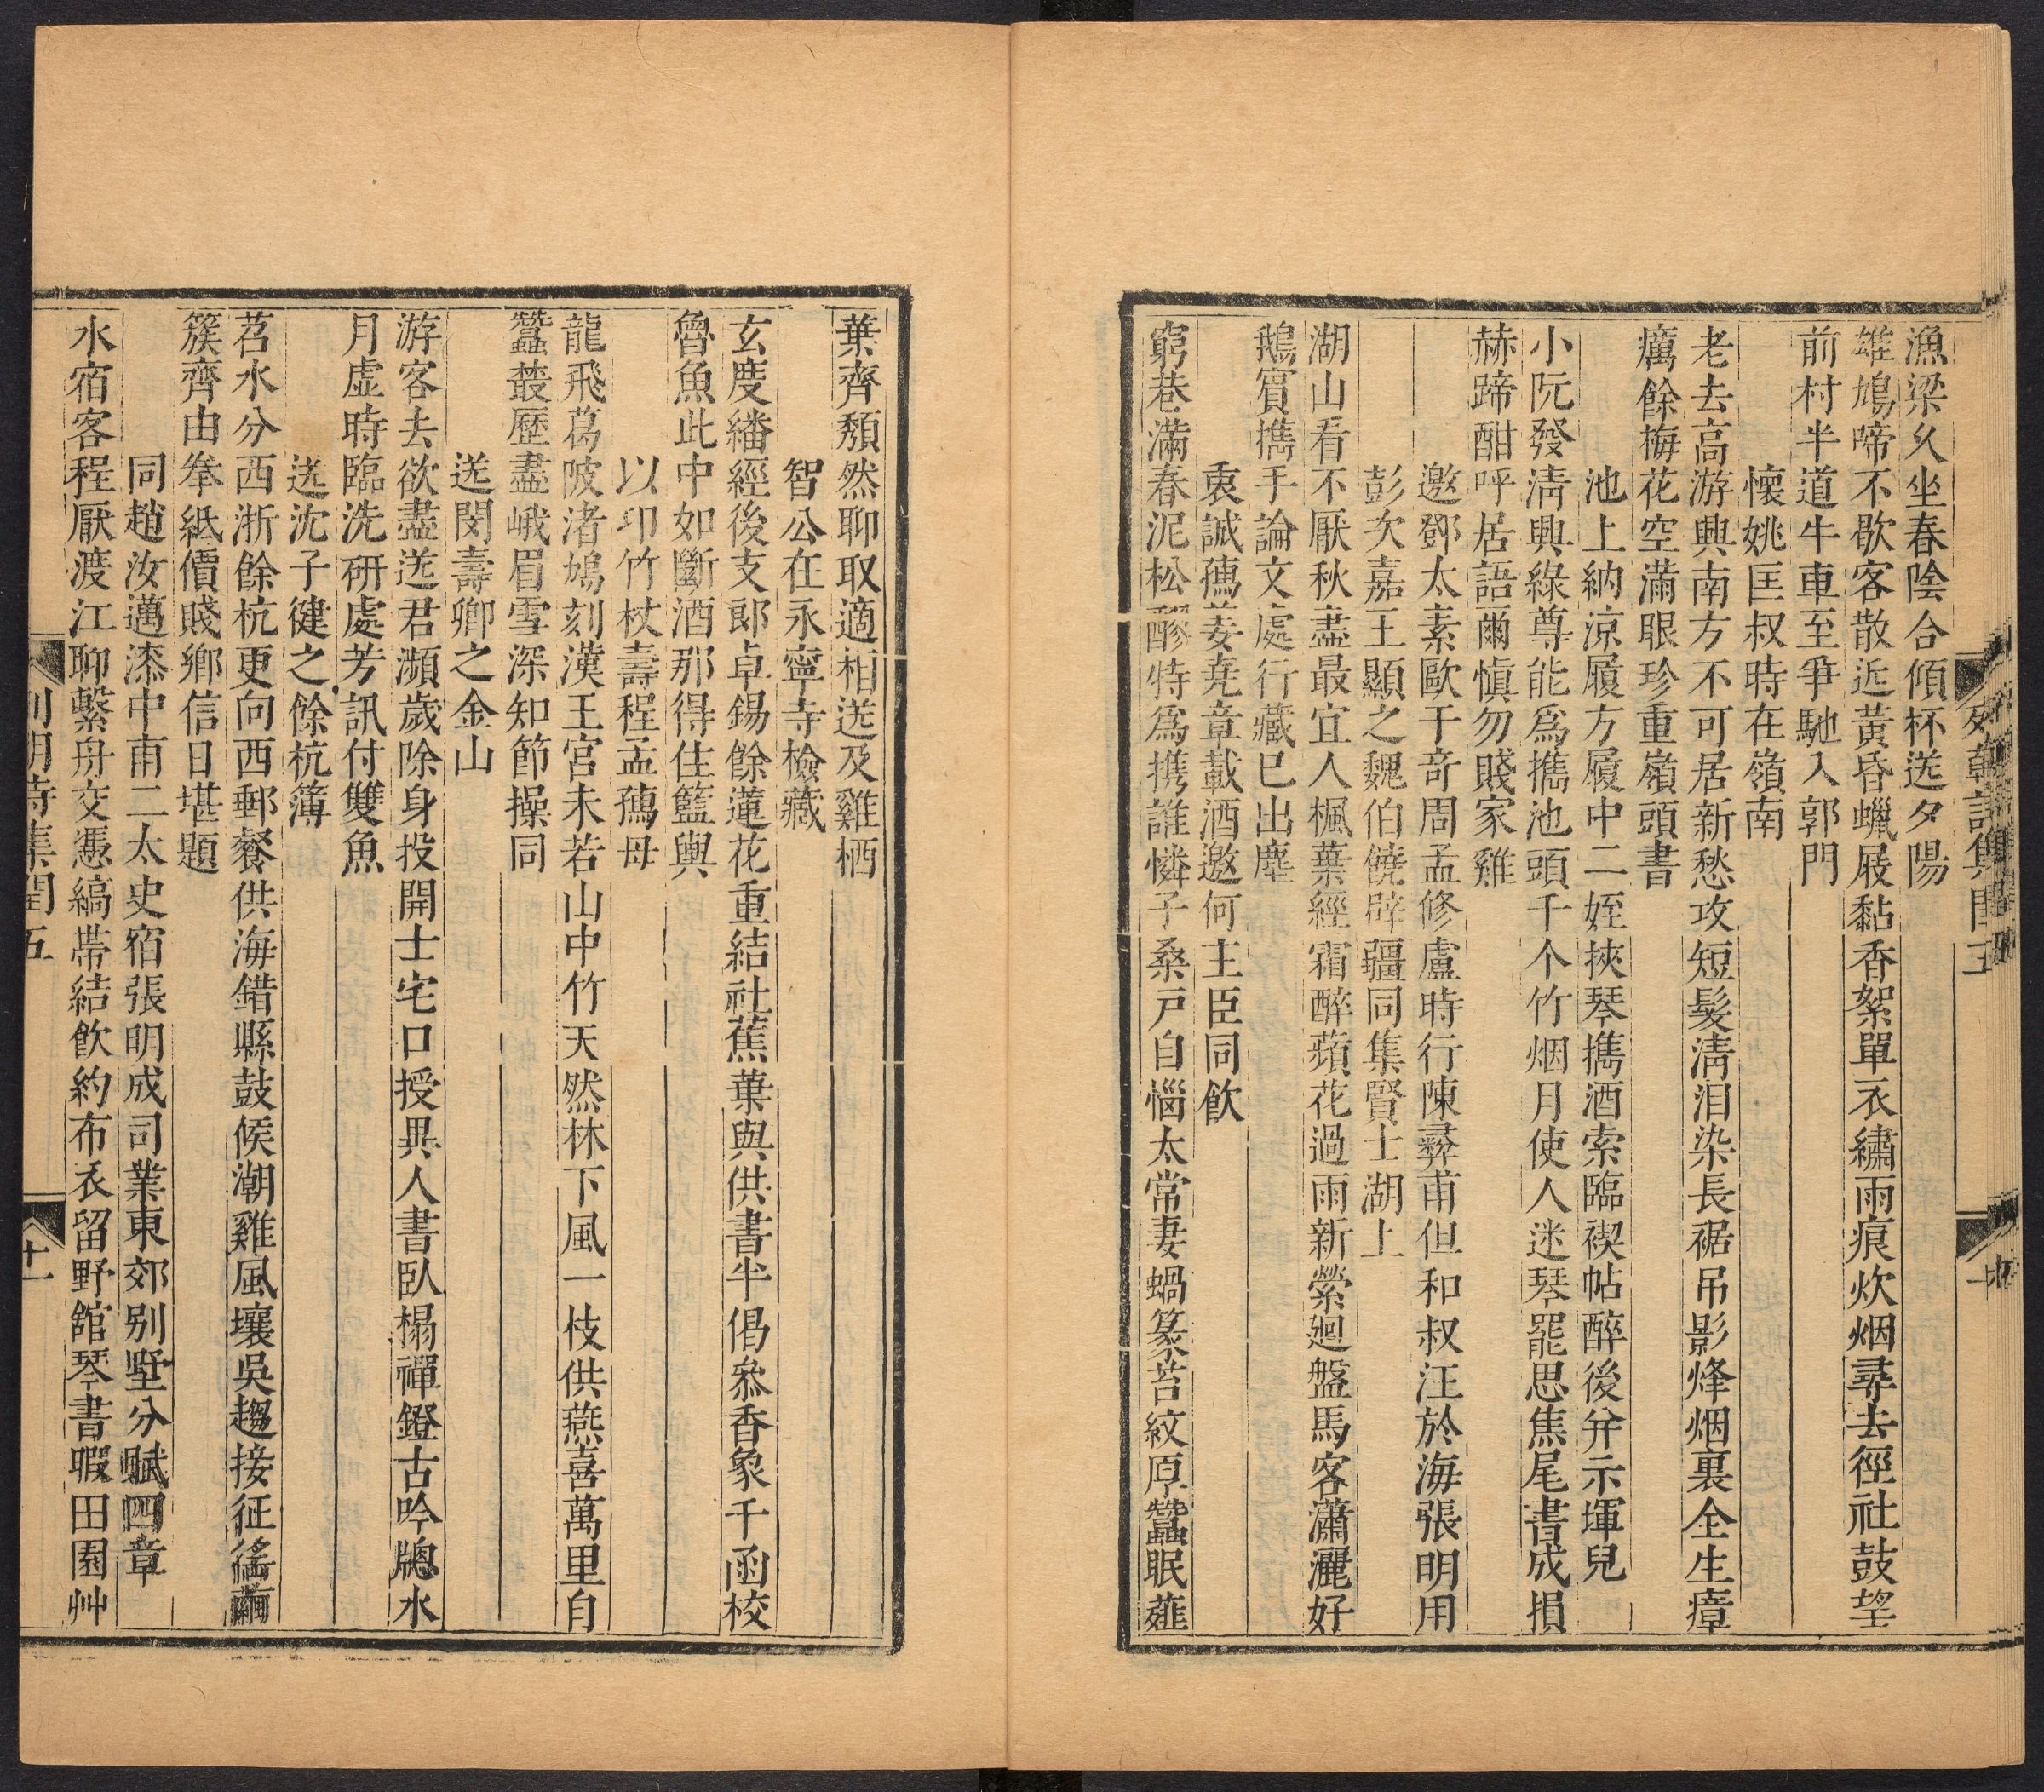 漁梁久坐春陰合傾杯送夕陽
雄鳩啼不歇客散近黃昏蠟屐黏香絮單衣繡雨痕炊烟尋去徑社鼓望
前村半道牛車至爭馳入郭門
懷姚匡叔時在嶺南
老去高游興南方不可居新愁攻短髮淸泪染長裾吊影烽烟裏全生瘴
癘餘梅花空滿眼珍重嶺頭書
池上納凉履方履中二姪挾琴攜酒索臨禊帖醉後并示墠兒
小阮發淸興綠尊能爲攜池頭千个竹烟月使人迷琴罷思焦尾書成損
赫蹄酣呼居語爾愼勿賤家雞
邀鄧太素歐于奇周孟修盧時行陳彞甫但和叔汪於海張明用
彭次嘉王顯之魏伯饒辟疆同集賢士湖上
湖山看不厭秋盡最宜人楓葉經霜醉蘋花過雨新縈廻盤馬客瀟灑好
鵝賓攜手論文處行藏已出塵
衷誠鴈姜堯章載酒邀何主臣同飮
窮巷滿春泥松醪特爲携誰憐子桑戸自惱太常妻蝸篆苔紋原蠶眠薤
葉齊頽然聊取適相送及雞栖
智公在永寧寺檢藏
玄度繙經後支郎卓錫餘蓮花重結社蕉葉與供書半偈叅香象千函校
魯魚此中如斷酒那得住籃輿
以卭竹杖壽程孟鴈母
龍飛葛陂渚鳩刻漢王宮未若山中竹天然林下風一枝供燕喜萬里自
蠶叢歷盡峨眉雪深知節操同
送閔壽卿之金山
游客去欲盡送君瀕歲除身投開士宅口授異人書臥榻禪鐙古吟牕水
月虚時臨洗研處芳訊付雙魚
送沈子健之餘杭簿
苕水分西浙餘杭更向西郵餐供海錯縣鼓候潮雞風壤吳趨接征徭繭
簇齊由拳紙價賤鄉信日堪題
同趙汝邁漆中甫二太史宿張明成司業東郊別墅分賦四章
水宿客程厭渡江聊繫舟交憑縞帶結飮約布衣留野館琴書暇田園艸